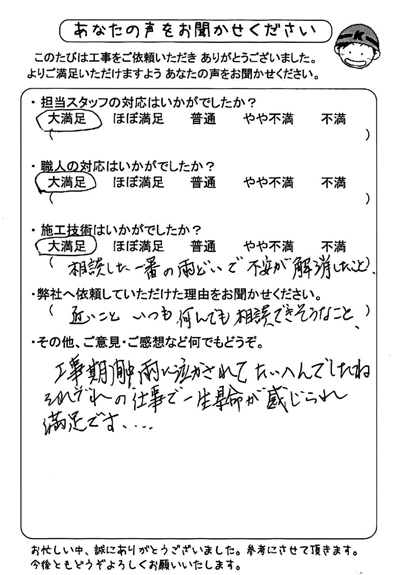 あなたの声をお聞かせください
K
このたびは工事をご依頼いただき ありがとうございました。
よりご満足いただけますよう あなたの声をお聞かせください。
・担当スタッフの対応はいかがでしたか?
大満足 ほぼ満足 普通 やや不満 不満
( )
・職人の対応はいかがでしたか?
大満足 ほぼ満足 普通 やや不満 不満
( )
・施工技術はいかがでしたか?
大満足 ほぼ満足 普通 やや不満 不満
(相談した一番の雨どいで不安が解消したこと)
・弊社へ依頼していただけた理由をお聞かせください。
(近いこと いつも何んでも相談できそうなこと)
・その他、ご意見・ご感想など何でもどうぞ。
工事期間中雨に泣かされてたいへんでしたね
それぞれの仕事で一生懸命が感じられ
満足です....
お忙しい中、誠にありがとうございました。参考にさせて頂きます。
今後ともどうぞよろしくお願いいたします。